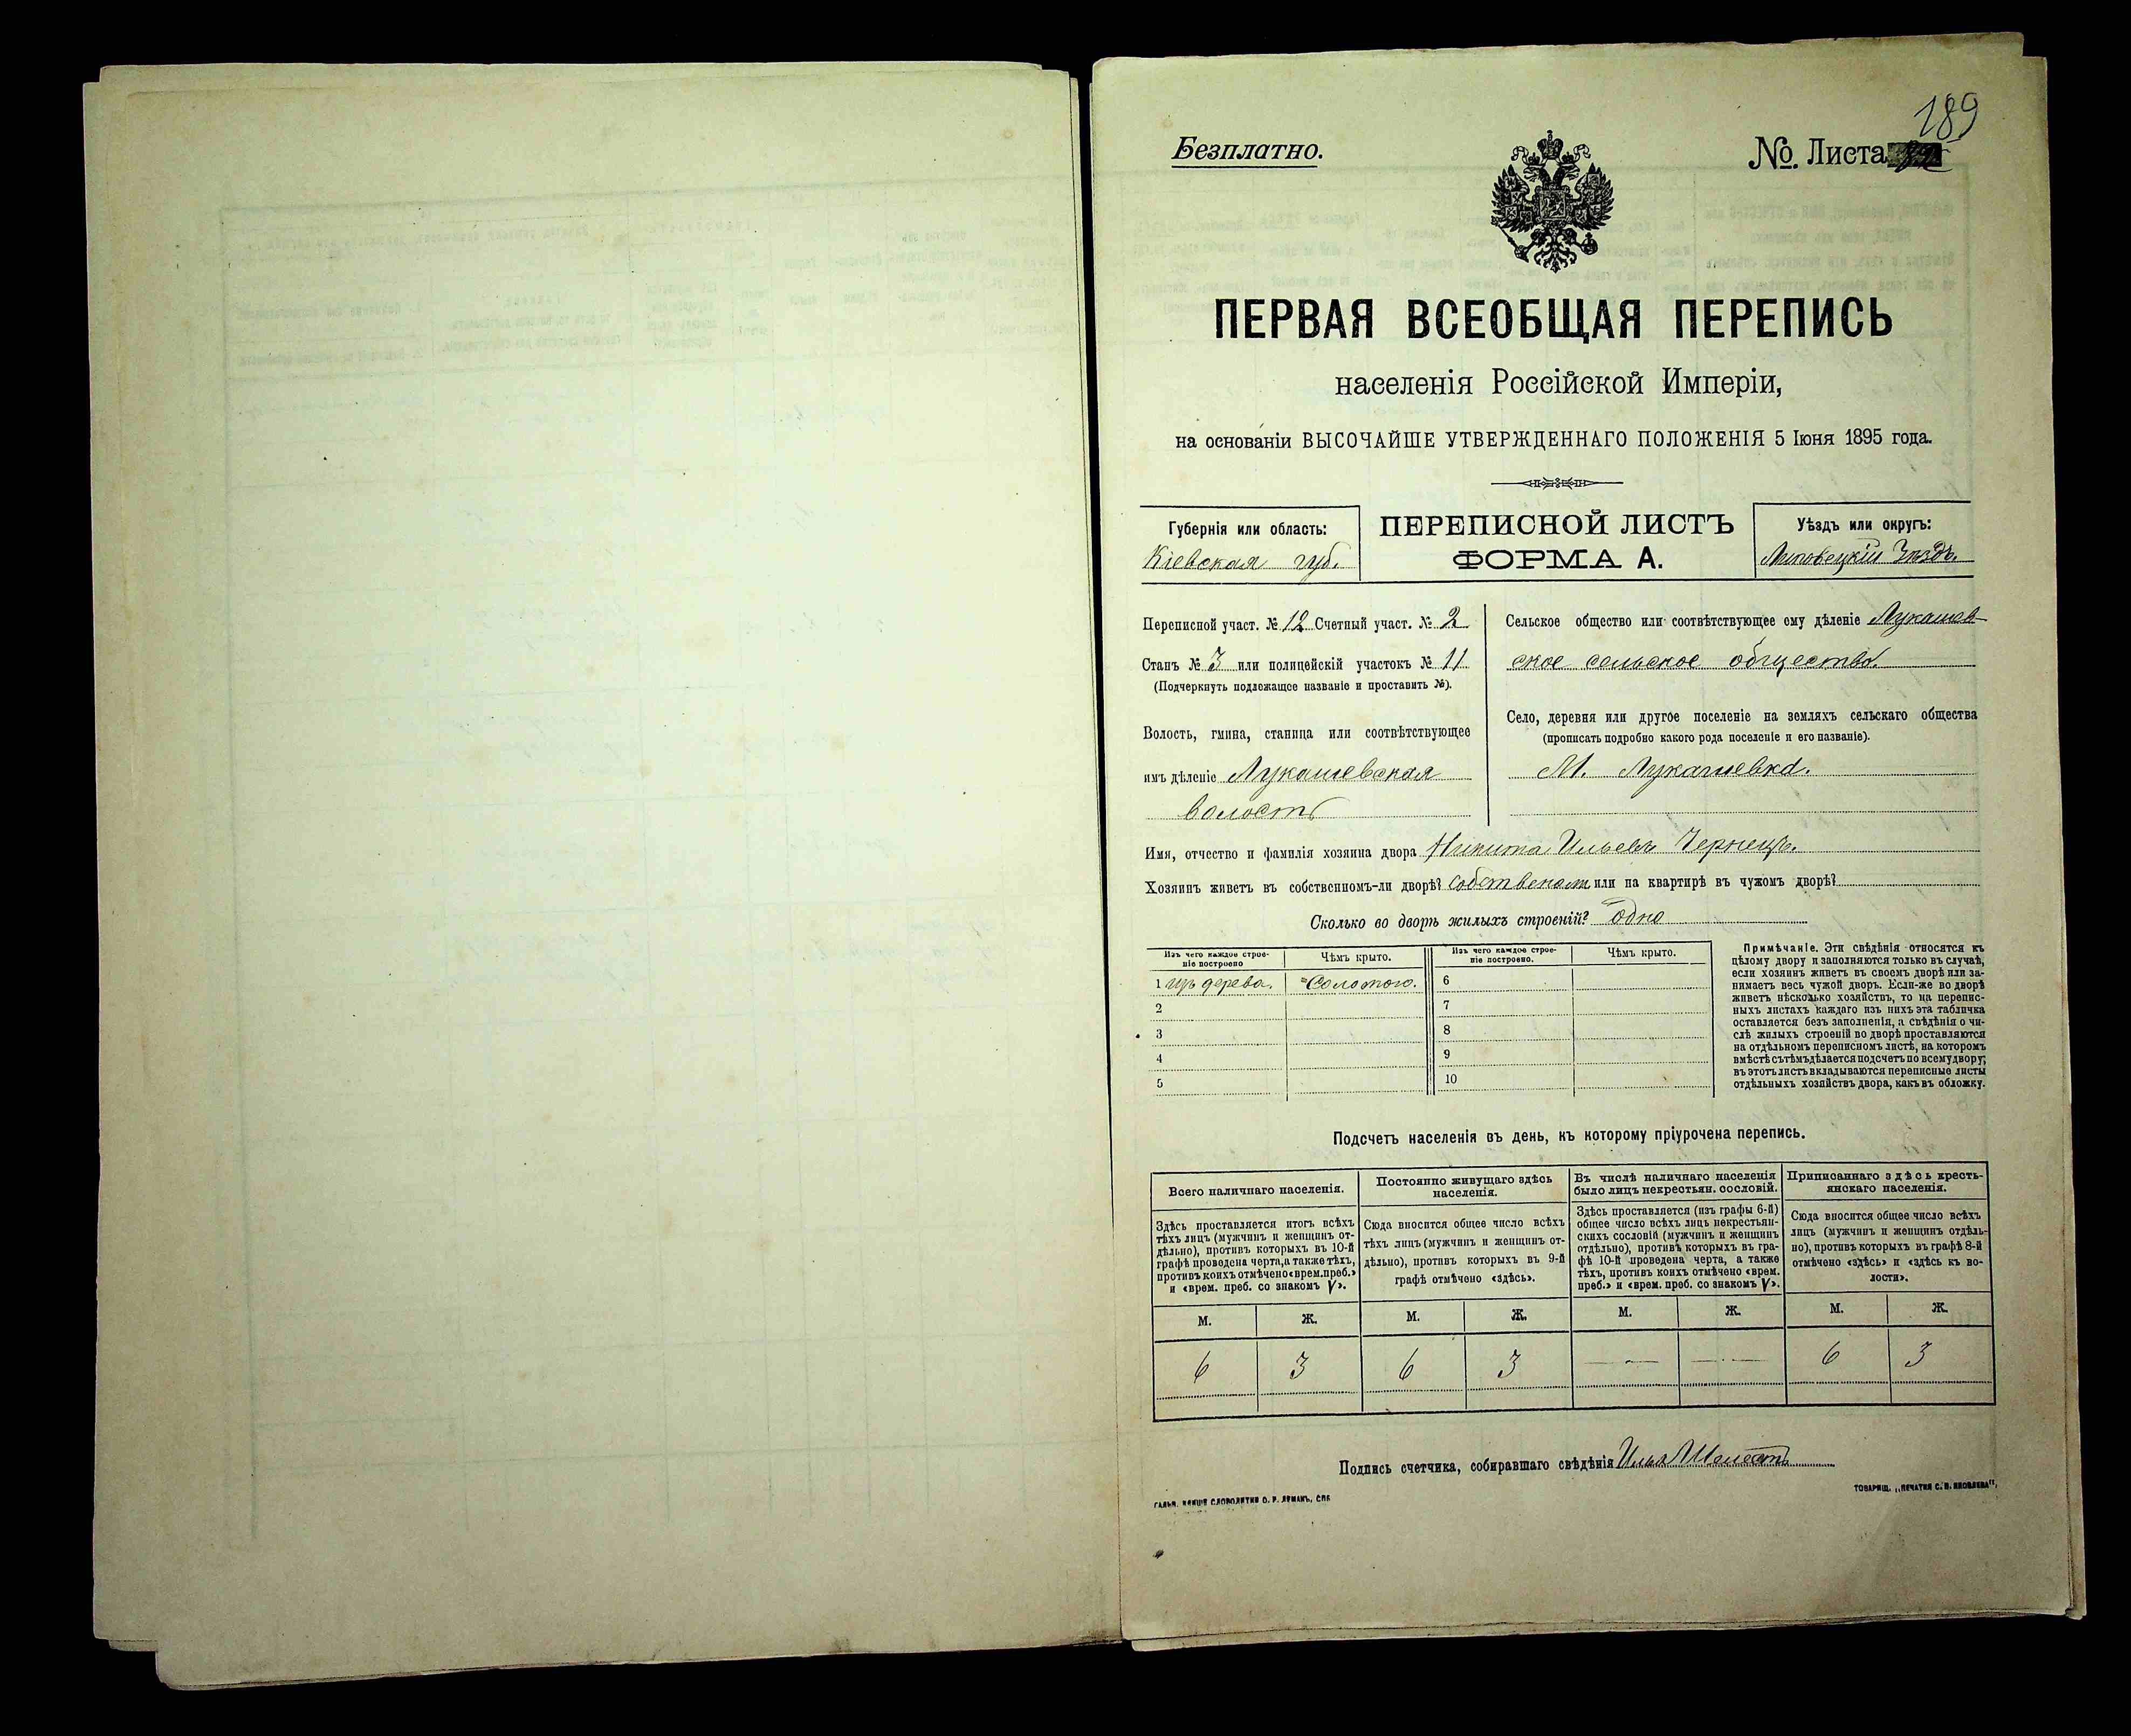 189
Безплатно.
№. Листа
ПЕРВАЯ ВСЕОБЩАЯ ПЕРЕПИСЬ
населенія Россійской Имперіи,
на основаніи ВЫСОЧАЙШЕ УТВЕРЖДЕННАГО ПОЛОЖЕНІЯ 5 Іюня 1895 года.
Губернія или область:
Кіевская губ.
ПЕРЕПИСНОЙ ЛИСТЪ
ФОРМА А.
Уѣздъ или округъ:
Липовецкій Уѣздъ.
Переписной участ. № 12 Счетный участ. № 2
Станъ № 3 или полицейскій участокъ № 11
(Подчеркнуть подлежащее названіе и проставить №).
Волость, гмина, станица или соотвѣтствующее
имъ дѣленіе Лукашевская
волость
Сельское общество или соотвѣтствующее ему дѣленіе Лукашев-
ское сельское общество.
Село, деревня или другое поселеніе на земляхъ сельскаго общества
(прописать подробно какого рода поселеніе и его названіе).
М. Лукашевка.
Имя, отчество и фамилія хозяина двора Никита Ильевъ Чернецъ.
Хозяинъ живетъ въ собственномъ-ли дворѣ? собственом или на квартирѣ въ чужомъ дворѣ?
Сколько во дворѣ жилыхъ строеній? одно
Изъ чего каждое строе-
ніе построено
Чѣмъ крыто.
Изъ чего каждое строе-
ніе построено.
Чѣмъ крыто.
1 изъ дерева. Соломою. 6
2 7
3 8
4 9
5 10
Примѣчаніе. Эти свѣдѣнія относятся къ
цѣлому двору и заполняются только въ случаѣ,
если хозяинъ живетъ въ своемъ дворѣ или за-
нимаетъ весь чужой дворъ. Если-же во дворѣ
живетъ нѣсколько хозяйствъ, то на перепис-
ныхъ листахъ каждаго изъ нихъ эта табличка
оставляется безъ заполненія, а свѣдѣнія о чи-
слѣ жилыхъ строеній во дворѣ проставляются
на отдѣльномъ переписномъ листѣ, на которомъ
вмѣстѣ съ тѣмъ дѣлается подсчетъ по всему двору;
въ этотъ листъ вкладываются переписные листы
отдѣльныхъ хозяйствъ двора, какъ въ обложку.
Подсчетъ населенія въ день, къ которому пріурочена перепись.
Всего наличнаго населенія.
Здѣсь проставляется итогъ всѣхъ
тѣхъ лицъ (мужчинъ и женщинъ от-
дѣльно), противъ которыхъ въ 10-й
графѣ проведена черта, а также тѣхъ,
противъ коихъ отмѣчено «врем. преб.»
и «врем. преб. со знакомъ V».
Постоянно живущаго здѣсь
населенія.
Сюда вносится общее число всѣхъ
тѣхъ лицъ (мужчинъ и женщинъ от-
дѣльно), противъ которыхъ въ 9-й
графѣ отмѣчено «здѣсь».
Въ числѣ наличнаго населенія
было лицъ некрестьян. сословій.
Здѣсь проставляется (изъ графы 6-й)
общее число всѣхъ лицъ некрестьян-
скихъ сословій (мужчинъ и женщинъ
отдѣльно), противъ которыхъ въ гра-
фѣ 10-й проведена черта, а также
тѣхъ, противъ коихъ отмѣчено «врем.
преб.» и «врем. преб. со знакомъ V».
Приписаннаго здѣсь кресть-
янскаго населенія.
Сюда вносится общее число всѣхъ
лицъ (мужчинъ и женщинъ отдѣль-
но), противъ которыхъ въ графѣ 8-й
отмѣчено «здѣсь» и «здѣсь къ во-
лости».
М. Ж. М. Ж. М. Ж. М. Ж.
6 3 6 3 — — 6 3
Подпись счетчика, собиравшаго свѣдѣнія Илья Шелестъ
ТОВАРИЩ. „ПЕЧАТНЯ С. П. ЯКОВЛЕВА“.